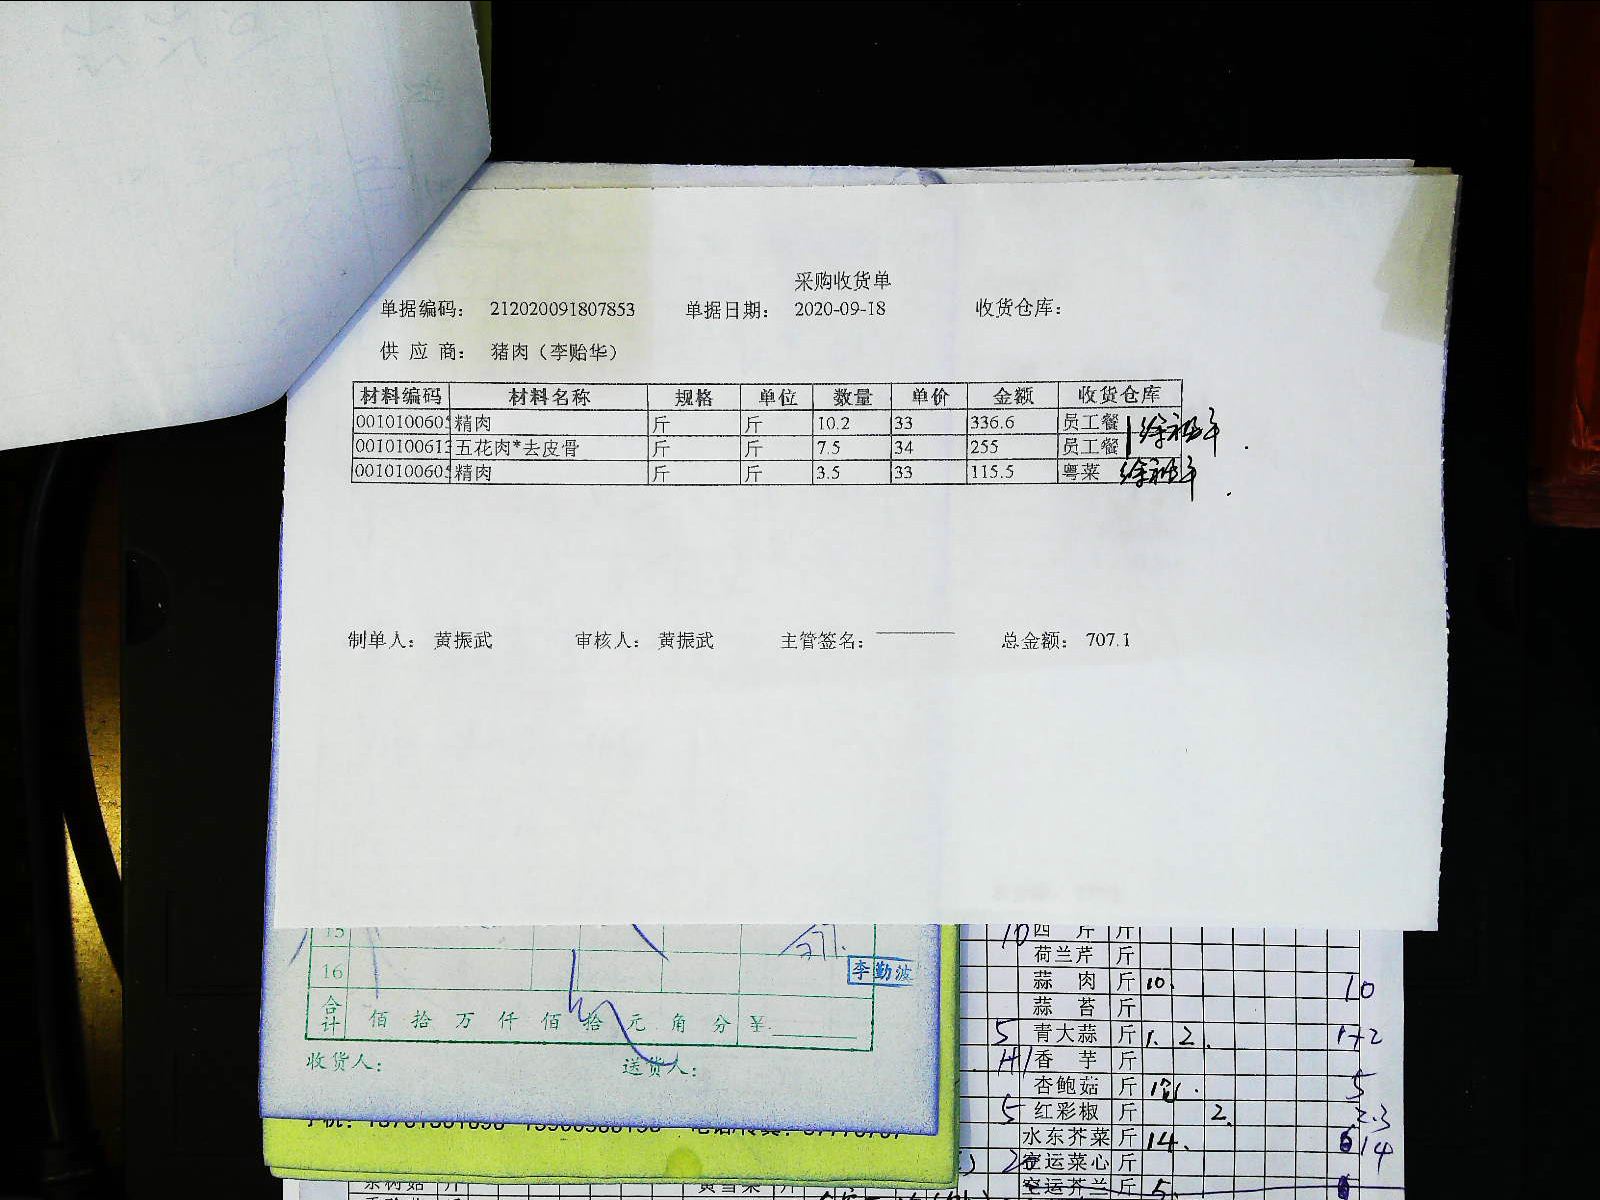 采购收货单
单据编码： 212020091807853 单据日期： 2020-09-18 收货仓库：
供 应 商： 猪肉（李贻华）
材料编码 材料名称 规格 单位 数量 单价 金额 收货仓库
0010100605 精肉 斤 斤 10.2 33 336.6 员工餐
0010100613 五花肉*去皮骨 斤 斤 7.5 34 255 员工餐
0010100605 精肉 斤 斤 3.5 33 115.5 粤菜
制单人： 黄振武 审核人： 黄振武 主管签名： 总金额： 707.1
15
16
李勤波
合计 佰 拾 万 仟 佰 拾 元 角 分 ¥
收货人： 送货人：
10 西 芹 斤
荷兰芹 斤
蒜 肉 斤 10. 10
蒜 苔 斤
5 青大蒜 斤 1. 2. 1+2
香 芋 斤
杏鲍菇 斤 5
5 红彩椒 斤 2. 2.3
水东芥菜 斤 14. 14
空运菜心 斤
空运芥兰 斤 5.